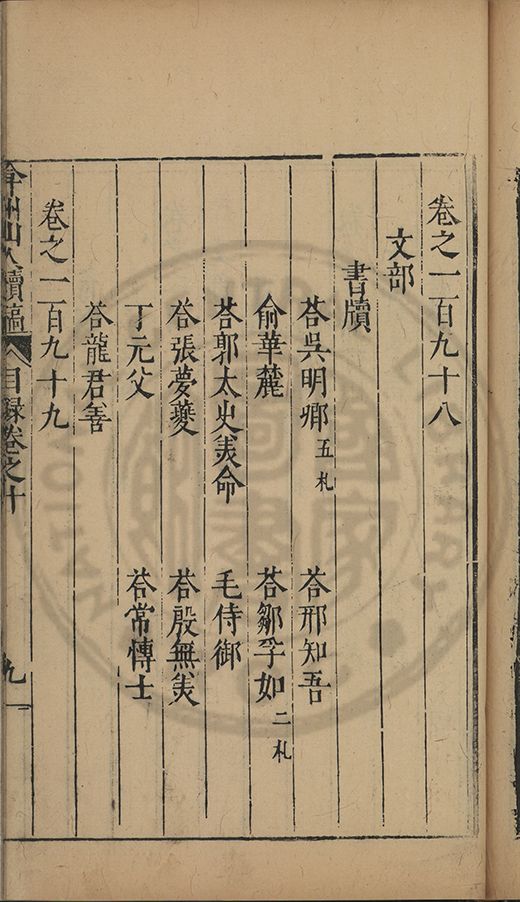 卷之一百九十八
文部
書牘
荅吳明卿 五札 荅邢知吾
俞華麓 荅鄒孚如 二札
荅郭太史美命 毛侍御
荅張夢夔 荅殷無美
丁元父 荅常博士
荅龍君善
卷之一百九十九
弇州山人續稿 目録卷之十 九